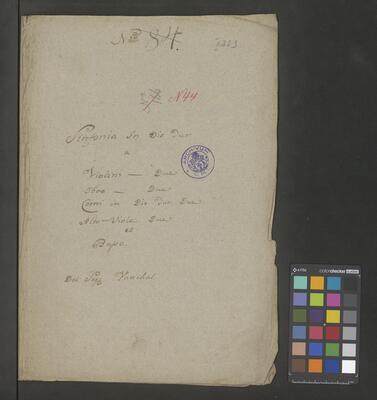 No 84.
N44
Sinfonia In Dis Dur
a
Violini — Due
Oboe — Due
Corni in Dis Dur Due
Alto-Viole Due
et
Basso
Del Sig Vanchal
x-rite colorchecker